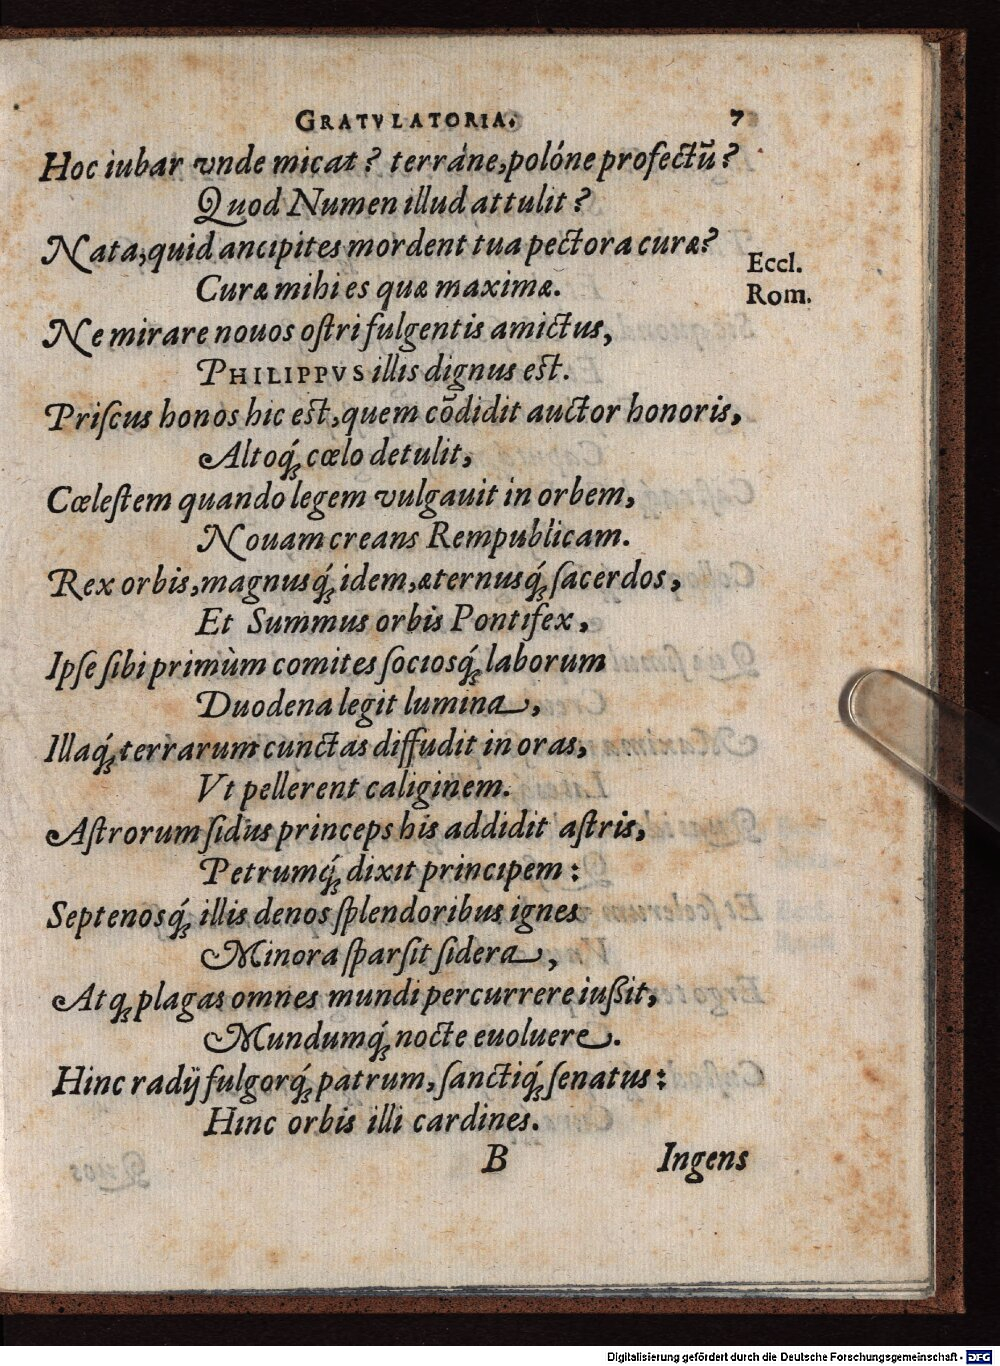 GRATVLATORIA. 7
Hoc iubar vnde micat? terráne, polóne profectū?
Quod Numen illud attulit?
Nata, quid ancipites mordent tua pectora curæ?
Eccl.
Rom.
Curæ mihi es quæ maximæ.
Ne mirare nouos oſtri fulgentis amictus,
PHILIPPVS illis dignus eſt.
Priſcus honos hic eſt, quem cōdidit auctor honoris,
Altoq́; cœlo detulit,
Cœleſtem quando legem vulgauit in orbem,
Nouam creans Rempublicam.
Rex orbis, magnusq́; idem, æternusq́; ſacerdos,
Et Summus orbis Pontifex,
Ipſe ſibi primùm comites ſociosq́; laborum
Duodena legit lumina,
Illaq́; terrarum cunctas diffudit in oras,
Vt pellerent caliginem.
Aſtrorum ſidus princeps his addidit aſtris,
Petrumq́; dixit principem:
Septenosq́; illis denos ſplendoribus ignes
Minora ſparſit ſidera,
Atq; plagas omnes mundi percurrere iußit,
Mundumq́; nocte euoluere.
Hinc radij fulgorq́; patrum, ſanctiq́; ſenatus:
Hinc orbis illi cardines.
B Ingens
Digitalisierung gefördert durch die Deutsche Forschungsgemeinschaft - DFG